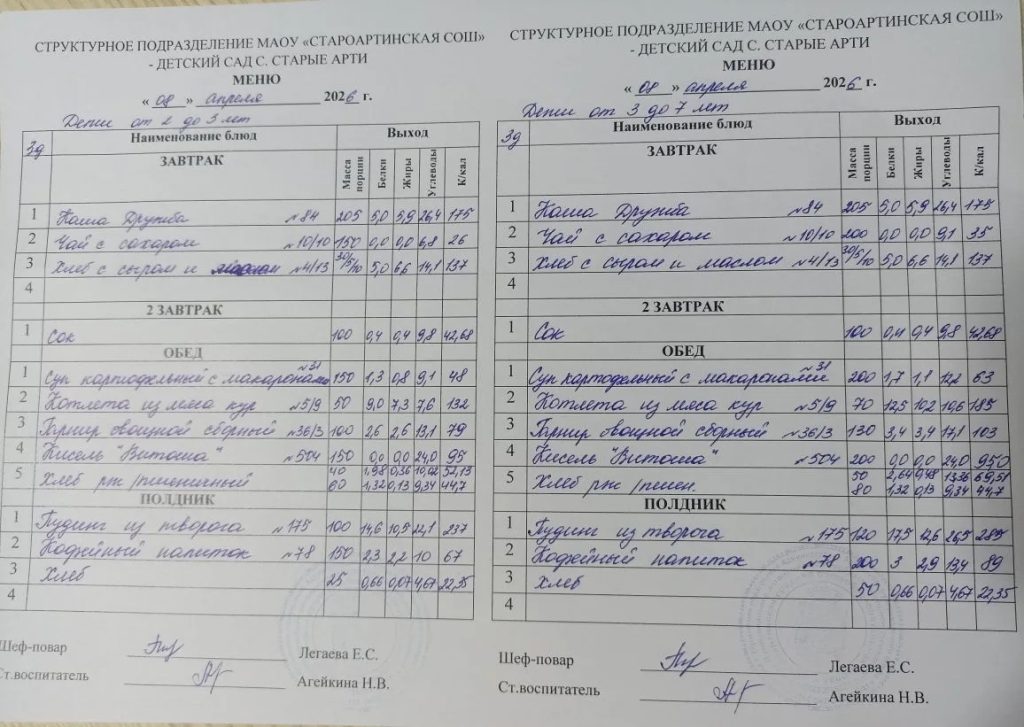 СТРУКТУРНОЕ ПОДРАЗДЕЛЕНИЕ МАОУ «СТАРОАРТИНСКАЯ СОШ»
- ДЕТСКИЙ САД С. СТАРЫЕ АРТИ
МЕНЮ
« 08 » апреля 2026 г.
Дети от 2 до 3 лет
3д Наименование блюд Выход
ЗАВТРАК Масса порции Белки Жиры Углеводы К/кал
1 Каша Дружба №84 205 5,0 5,9 26,4 175
2 Чай с сахаром №10/10 150 0,0 0,0 6,8 26
3 Хлеб с сыром и маслом №4/13 30/5/10 5,0 6,6 14,1 137
4
2 ЗАВТРАК
1 Сок 100 0,4 0,4 9,8 42,68
ОБЕД
1 Суп картофельный с макаронами №31 150 1,3 0,8 9,1 48
2 Котлета из мяса кур №5/9 50 9,0 7,3 7,6 132
3 Гарнир овощной сборный №36/3 100 2,6 2,6 13,1 79
4 Кисель "Витоша" №504 150 0,0 0,0 24,0 95
5 Хлеб рж /пшеничный 40 1,98 0,36 10,02 52,13
60 1,32 0,13 9,34 44,7
ПОЛДНИК
1 Пудинг из творога №175 100 14,6 10,5 22,1 237
2 Кофейный напиток №78 150 2,3 2,2 10 67
3 Хлеб 25 0,66 0,07 4,67 22,35
4
Шеф-повар Легаева Е.С.
Ст.воспитатель Агейкина Н.В.
СТРУКТУРНОЕ ПОДРАЗДЕЛЕНИЕ МАОУ «СТАРОАРТИНСКАЯ СОШ»
- ДЕТСКИЙ САД С. СТАРЫЕ АРТИ
МЕНЮ
« 08 » апреля 2026 г.
Дети от 3 до 7 лет
3д Наименование блюд Выход
ЗАВТРАК Масса порции Белки Жиры Углеводы К/кал
1 Каша Дружба №84 205 5,0 5,9 26,4 175
2 Чай с сахаром №10/10 200 0,0 0,0 9,1 35
3 Хлеб с сыром и маслом №4/13 30/5/10 5,0 6,6 14,1 137
4
2 ЗАВТРАК
1 Сок 100 0,4 0,4 9,8 42,68
ОБЕД
1 Суп картофельный с макаронами №31 200 1,7 1,1 12,2 63
2 Котлета из мяса кур №5/9 70 12,5 10,2 10,6 185
3 Гарнир овощной сборный №36/3 130 3,4 3,4 17,1 103
4 Кисель "Витоша" №504 200 0,0 0,0 24,0 950
5 Хлеб рж /пшен. 50 2,64 0,48 13,36 69,51
80 1,32 0,13 9,34 44,7
ПОЛДНИК
1 Пудинг из творога №175 120 17,5 12,6 26,5 285
2 Кофейный напиток №78 200 3 2,9 13,4 89
3 Хлеб 50 0,66 0,07 4,67 22,35
4
Шеф-повар Легаева Е.С.
Ст.воспитатель Агейкина Н.В.